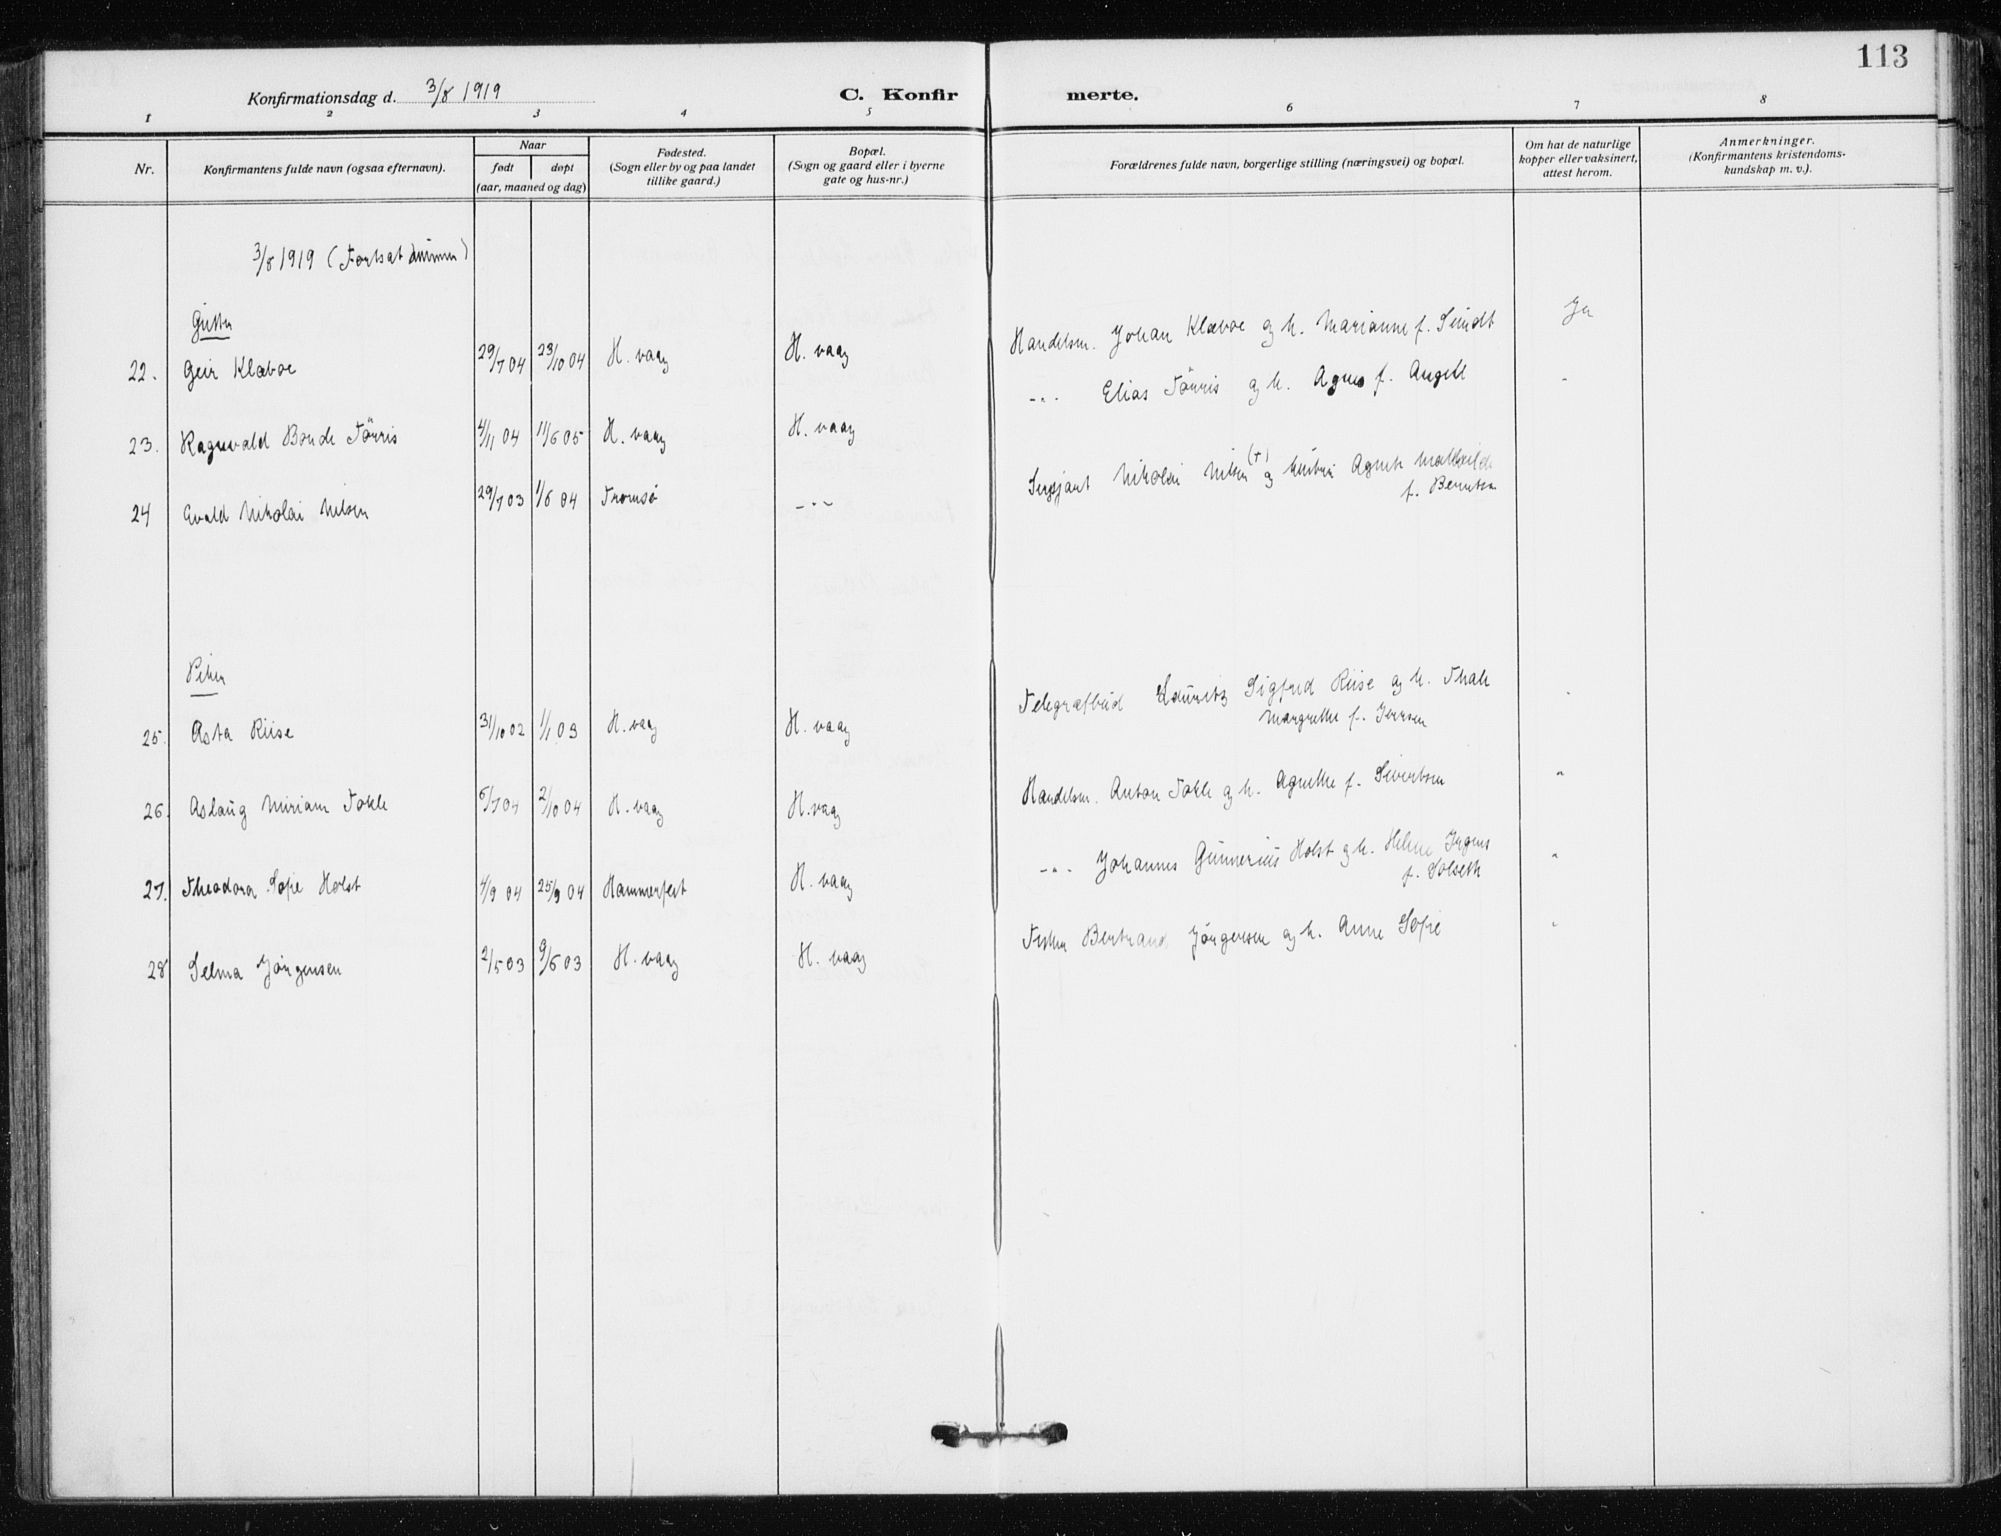 113
Konfirmationsdag d. 3/8 1919
C. Konfirmerte.
1 2 3 4 5 6 7 8
Nr.
Konfirmantens fulde navn (ogsaa efternavn).
Naar
født døpt
(aar, maaned og dag)
Fødested.
(Sogn eller by og paa landet
tillike gaard.)
Bopæl.
(Sogn og gaard eller i byerne
gate og hus-nr.)
Forældrenes fulde navn, borgerlige stilling (næringsvei) og bopæl.
Om hat de naturlige
kopper eller vaksinert,
attest herom.
Anmerkninger.
(Konfirmantens kristendoms-
kundskap m. v.).
3/8 1919 (Fortsat
Gutter
22. Geir Klæboe 29/7 04 23/10 04 H. vaag H. vaag Handelsm. Johan Klæboe og h. Marianne f. Sundt Ja
23. Ragnvald Bonde Tørris 4/11 04 11/6 05 H. vaag H. vaag -"- Elias Tørris og h. Agnes f. Angell "
24 Evald Nikolai Nilsen 29/7 03 1/6 04 Tromsø -"- Sersjant Nikolai Nilsen (+) og hustru Agnete Mathilde
f. Berntsen
Piker
25. Asta Riise 31/10 02 1/1 03 H. vaag H. vaag Telegrafbud Lauritz Sigfred Riise og h. Thale "
Margrethe f. Iversen
26. Aslaug Miriam Fokle 6/7 04 2/10 04 H. vaag H. vaag Handelsm. Anton Fokle og h. Agnethe f. Sivertsen "
27. Theodora Sofie Holst 4/9 04 25/9 04 Hammerfest H. vaag -"- Johannes Gunnerius Holst og h. Helene "
f. Solseth
28 Selma Jørgensen 2/5 03 9/6 03 H. vaag H. vaag Fisker Bertrand Jørgensen og h. Anne Sofie "